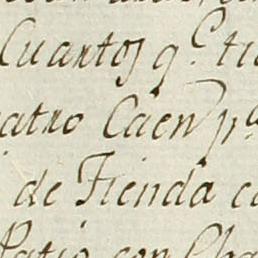 Cuartos q.e ti
atro Caen p.a
de Tienda c
Patio con Cha